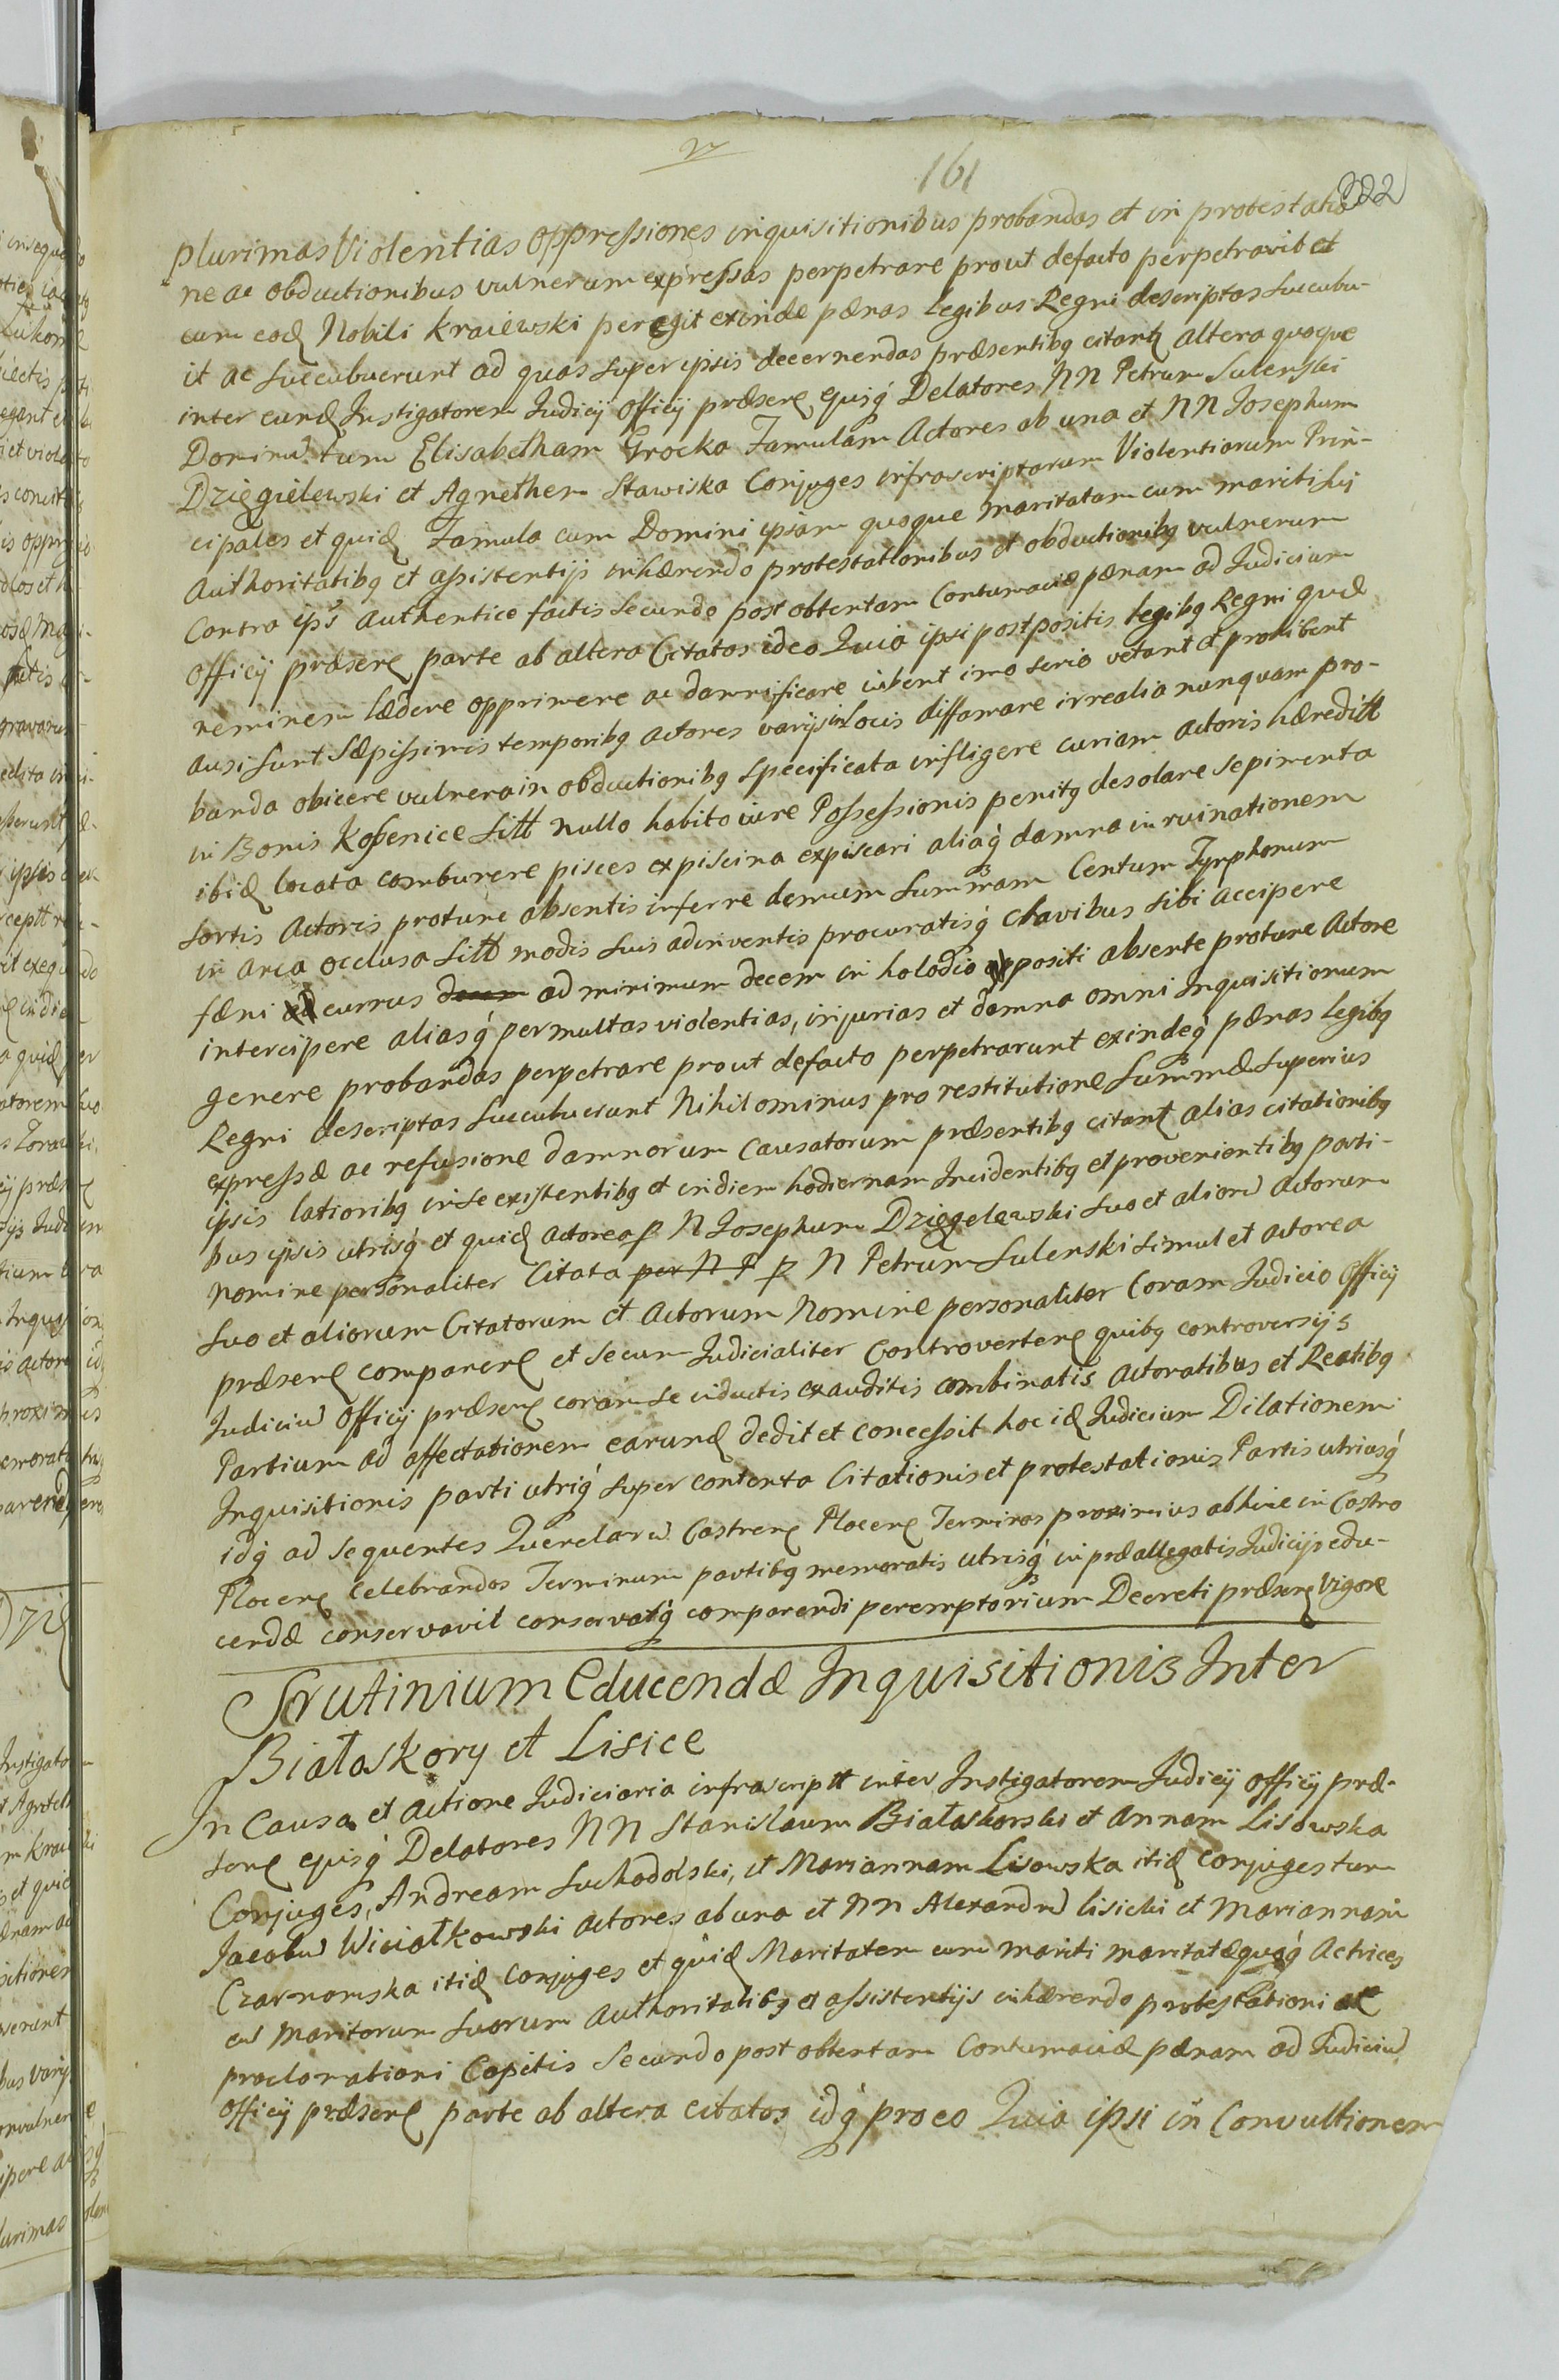 161
322
plurimas Violentias oppressiones inquisitionibus probandas et in protestatio
ne ac obductionibus vulnerum expressas perpetrare prout defacto perpetravit et
cum eod Nobili Kraiewski peregit exinde pænas legibus Regni descriptas succubu-
it ac succubuerunt ad quas super ipsis decernendas præsentibq citantr altera quoque
inter eund Instigatorem Judicij officij præsens ejusq Delatores NN Petrum Sulenski
Dominu tum Elisabetham Grocka Famulam Actores ab una et NN Josephum
Dzięgielewski et Agnethem Stawiska Conjuges infrascriptarum Violentiarum Prin-
cipales et quid Famula cum Domini ipsam quoque maritatam cum mariti sui
Authoritatibq et assistentijs inhærendo protestationibus et obductionibq vulnerum
Contra ips authentice factis secundo post obtentam Contumaciæ pænam ad Judicium
officij præsens parte ab altera Citatos ideo Quia ipsi postpositis legibq Regni quæ
neminem lædere opprimere ac damnificare iubent imo serio vetant et prohibent
ausi sunt sæpissimis temporibq Actores varijs in Locis diffamare irrealia nunquam pro-
banda obicere vulnera in obductionibq specificata infligere curiam actoris hæreditt
in Bonis Kosenice sitt nullo habito iure Possessionis penitq desolare sepimenta
ibid locata comburere pisces ex piscina expiscari aliaq damna in ruinationem
sortis Actoris protunc absentis inferre demum summam Centum Tymphonum
in arca occlusa sitt modis suis adinventis procuratisq Clavibus sibi accipere
fæni currus ad minimum decem in holodio oppositi absente protunc Actore
intercipere aliasq permultas violentias, injurias et damna omni Inquisitionum
genere probandas perpetrare prout defacto perpetrarunt exindeq pænas legibq
Regni descriptas succubuerunt Nihilominus pro restitutione summæ superius
expressæ ac refusione damnorum causatorum præsentibq citantr alias citationibq
ipsis latioribq in se existentibq et in diem hodiernam Incidentibq et provenientibq parti-
bus ipsis utrisq et quid actorea p N Josephum Dzięgelewski suo et alioru Actorum
nomine personaliter Citata per N P p N Petrum Sulenski simul et actorea
suo et aliorum Citatorum et Actorum Nomine personaliter Coram Judicio Officij
præsens comparens et secum Judicialiter Controvertens quibq controversijs
Judiciu Officij præsens coram se inductis exauditis combinatis Actoratibus et Reatibq
Partium ad affectationem earund dedit et concessit hoc id Judicium Dilationem
Inquisitionis parti utriq super contenta Citationis et protestationis Partis utriusq
idq ad sequentes Querelaru Castrens Plocens Terminos proximius abhinc in Castro
Plocens celebrandos Terminum partibq memoratis utrisq in præallegatis Judicijs edu-
cendæ conservavit conservatq comparendi peremptorium Decreti præsens Vigore
Scrutinium Educendæ Inquisitionis Inter
Białaskory et Lisice
In Causa et actione Judiciaria infrascriptt inter Instigatorem Judicij officij præ-
sens ejusq Delatores NN Stanislaum Białaskorski et Annam Lisowska
Conjuges, Andream Suchodolski, et Mariannam Lisowska itid conjuges tum
Jacobu Wiciałkowski actores ab una et NN Alexandru Lisicki et Mariannam
Czarnomska itid conjuges et quid Maritatem cum mariti maritatæ quoq Actrices
cu maritorum suorum authoritatibq et assistentijs inhærendo protestationi ac
proclamationi Capitis Secundo post obtentam Contumaciæ pænam ad Judiciu
officij præsens parte ab altera citatos idq pro eo Quia ipsi in Convultionem